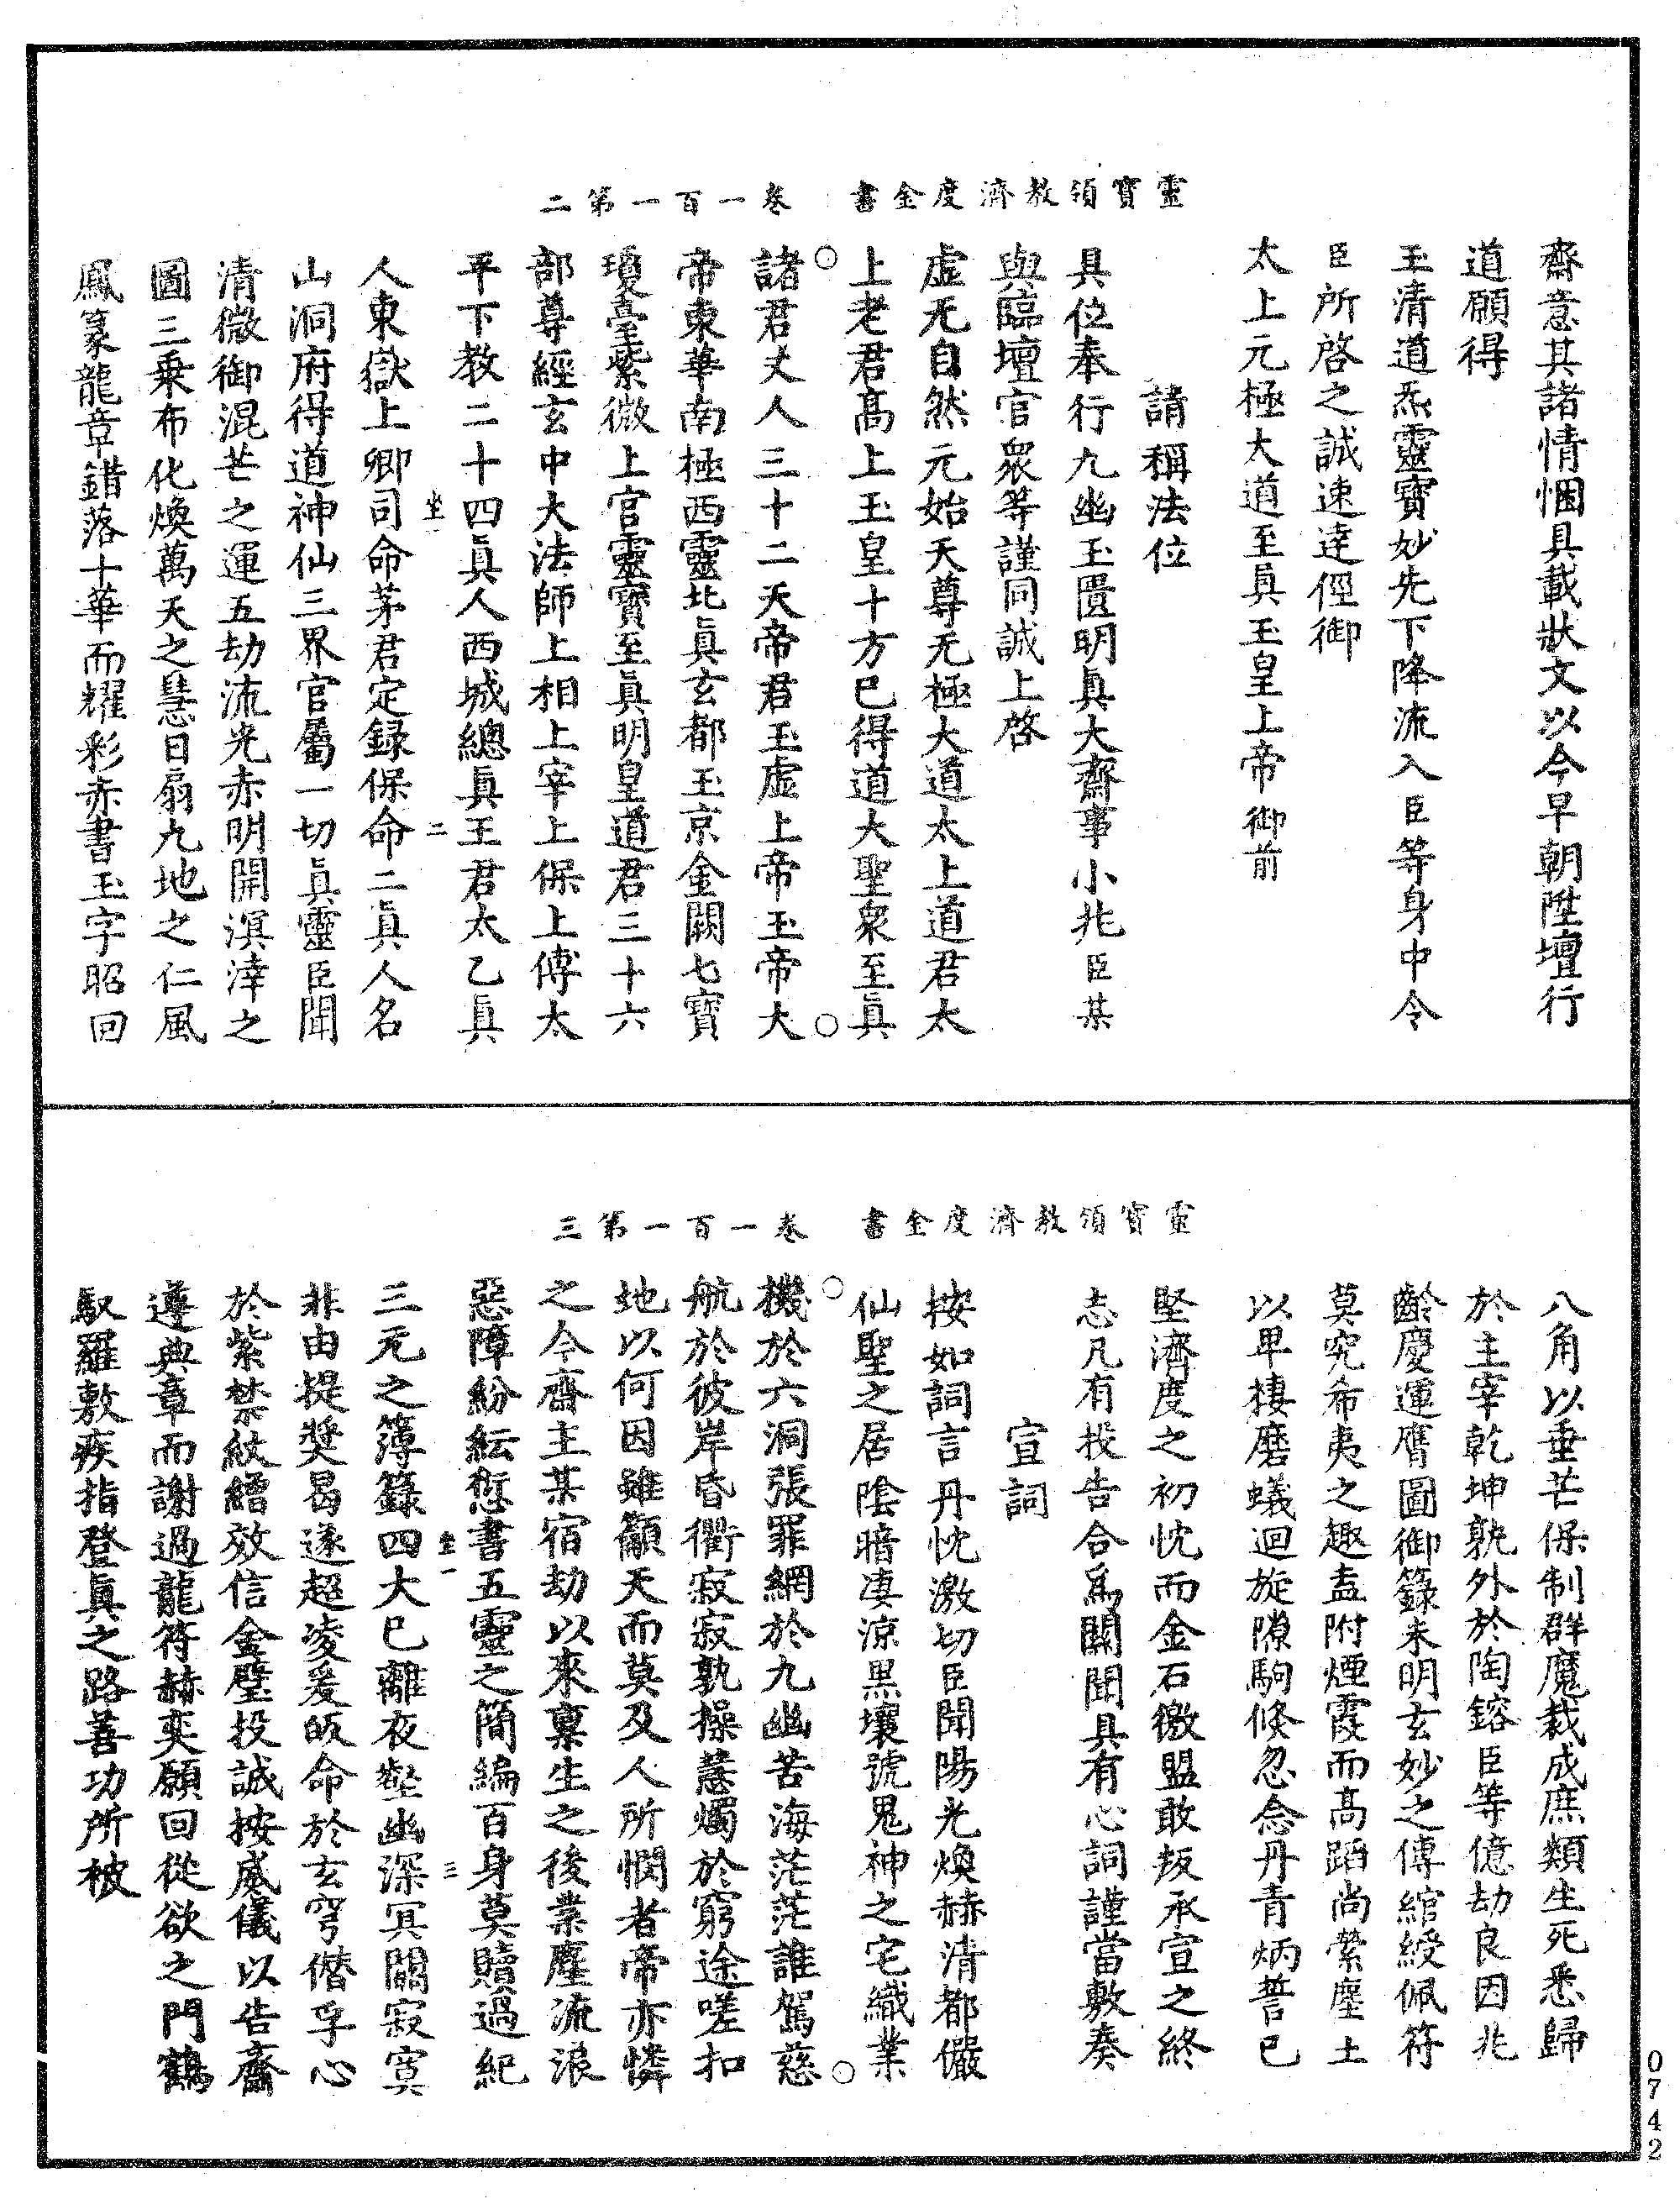 靈寶領教濟度金書 卷一百一第二
齋意其諸情悃具載狀文以今早朝陞壇行
道願得
玉清道炁靈寶妙先下降流入臣等身中令
臣所啓之誠速達徑御
太上元極大道至眞玉皇上帝御前
請稱法位
具位奉行九幽玉匱明眞大齋事小兆臣某
與臨壇官衆等謹同誠上啓
虛无自然元始天尊无極大道太上道君太
上老君髙上玉皇十方巳得道大聖衆至眞
諸君丈人三十二天帝君玉虛上帝玉帝大
帝東華南極西靈北眞玄都玉京金闕七寶
瓊臺紫微上官靈寶至眞明皇道君三十六
部尊經玄中大法師上相上宰上保上傅太
平下教二十四眞人西城總眞王君太乙眞
坐一 二
人東嶽上卿司命茅君定録保命二眞人名
山洞府得道神仙三界官屬一切眞靈臣聞
清微御混芒之運五劫流光赤明開溟涬之
圖三乗布化煥萬天之慧日扇九地之仁風
鳳篆龍章錯落十華而耀彩赤書玉字昭回
靈寶領教濟度金書 卷一百一第三
八角以垂芒保制群魔裁成庶類生死悉歸
於主宰乾坤孰外於陶鎔臣等億劫良因兆
齡慶運膺圖御籙未明玄妙之傳綰綬佩符
莫究希夷之趣盍附煙霞而髙蹈尚縈塵土
以卑棲磨蟻迴旋隙駒倏忽念丹青炳誓已
堅濟度之初忱而金石徼盟敢叛承宣之終
志凡有投告合爲關聞具有心詞謹當敷奏
宣詞
按如詞言丹忱激切臣聞陽光煥赫清都儼
仙聖之居陰暗凄涼黒壤號鬼神之宅織業
機於六洞張罪網於九幽苦海茫茫誰駕慈
航於彼岸昏衢寂寂孰操慧燭於窮途嗟扣
地以何因雖籲天而莫及人所憫者帝亦憐
之今齋主某宿劫以來稟生之後業塵流浪
惡障紛紜愆書五靈之簡編百身莫贖過紀
坐一 三
三元之簿籙四大巳離夜壑幽深冥關寂寞
非由提奬曷遂超凌爰皈命於玄穹僣孚心
於紫禁紋繒效信金璧投誠按威儀以告齋
遵典章而謝過龍符赫奕願回從欲之門鶴
馭羅敷疾指登眞之路善功所被
0742